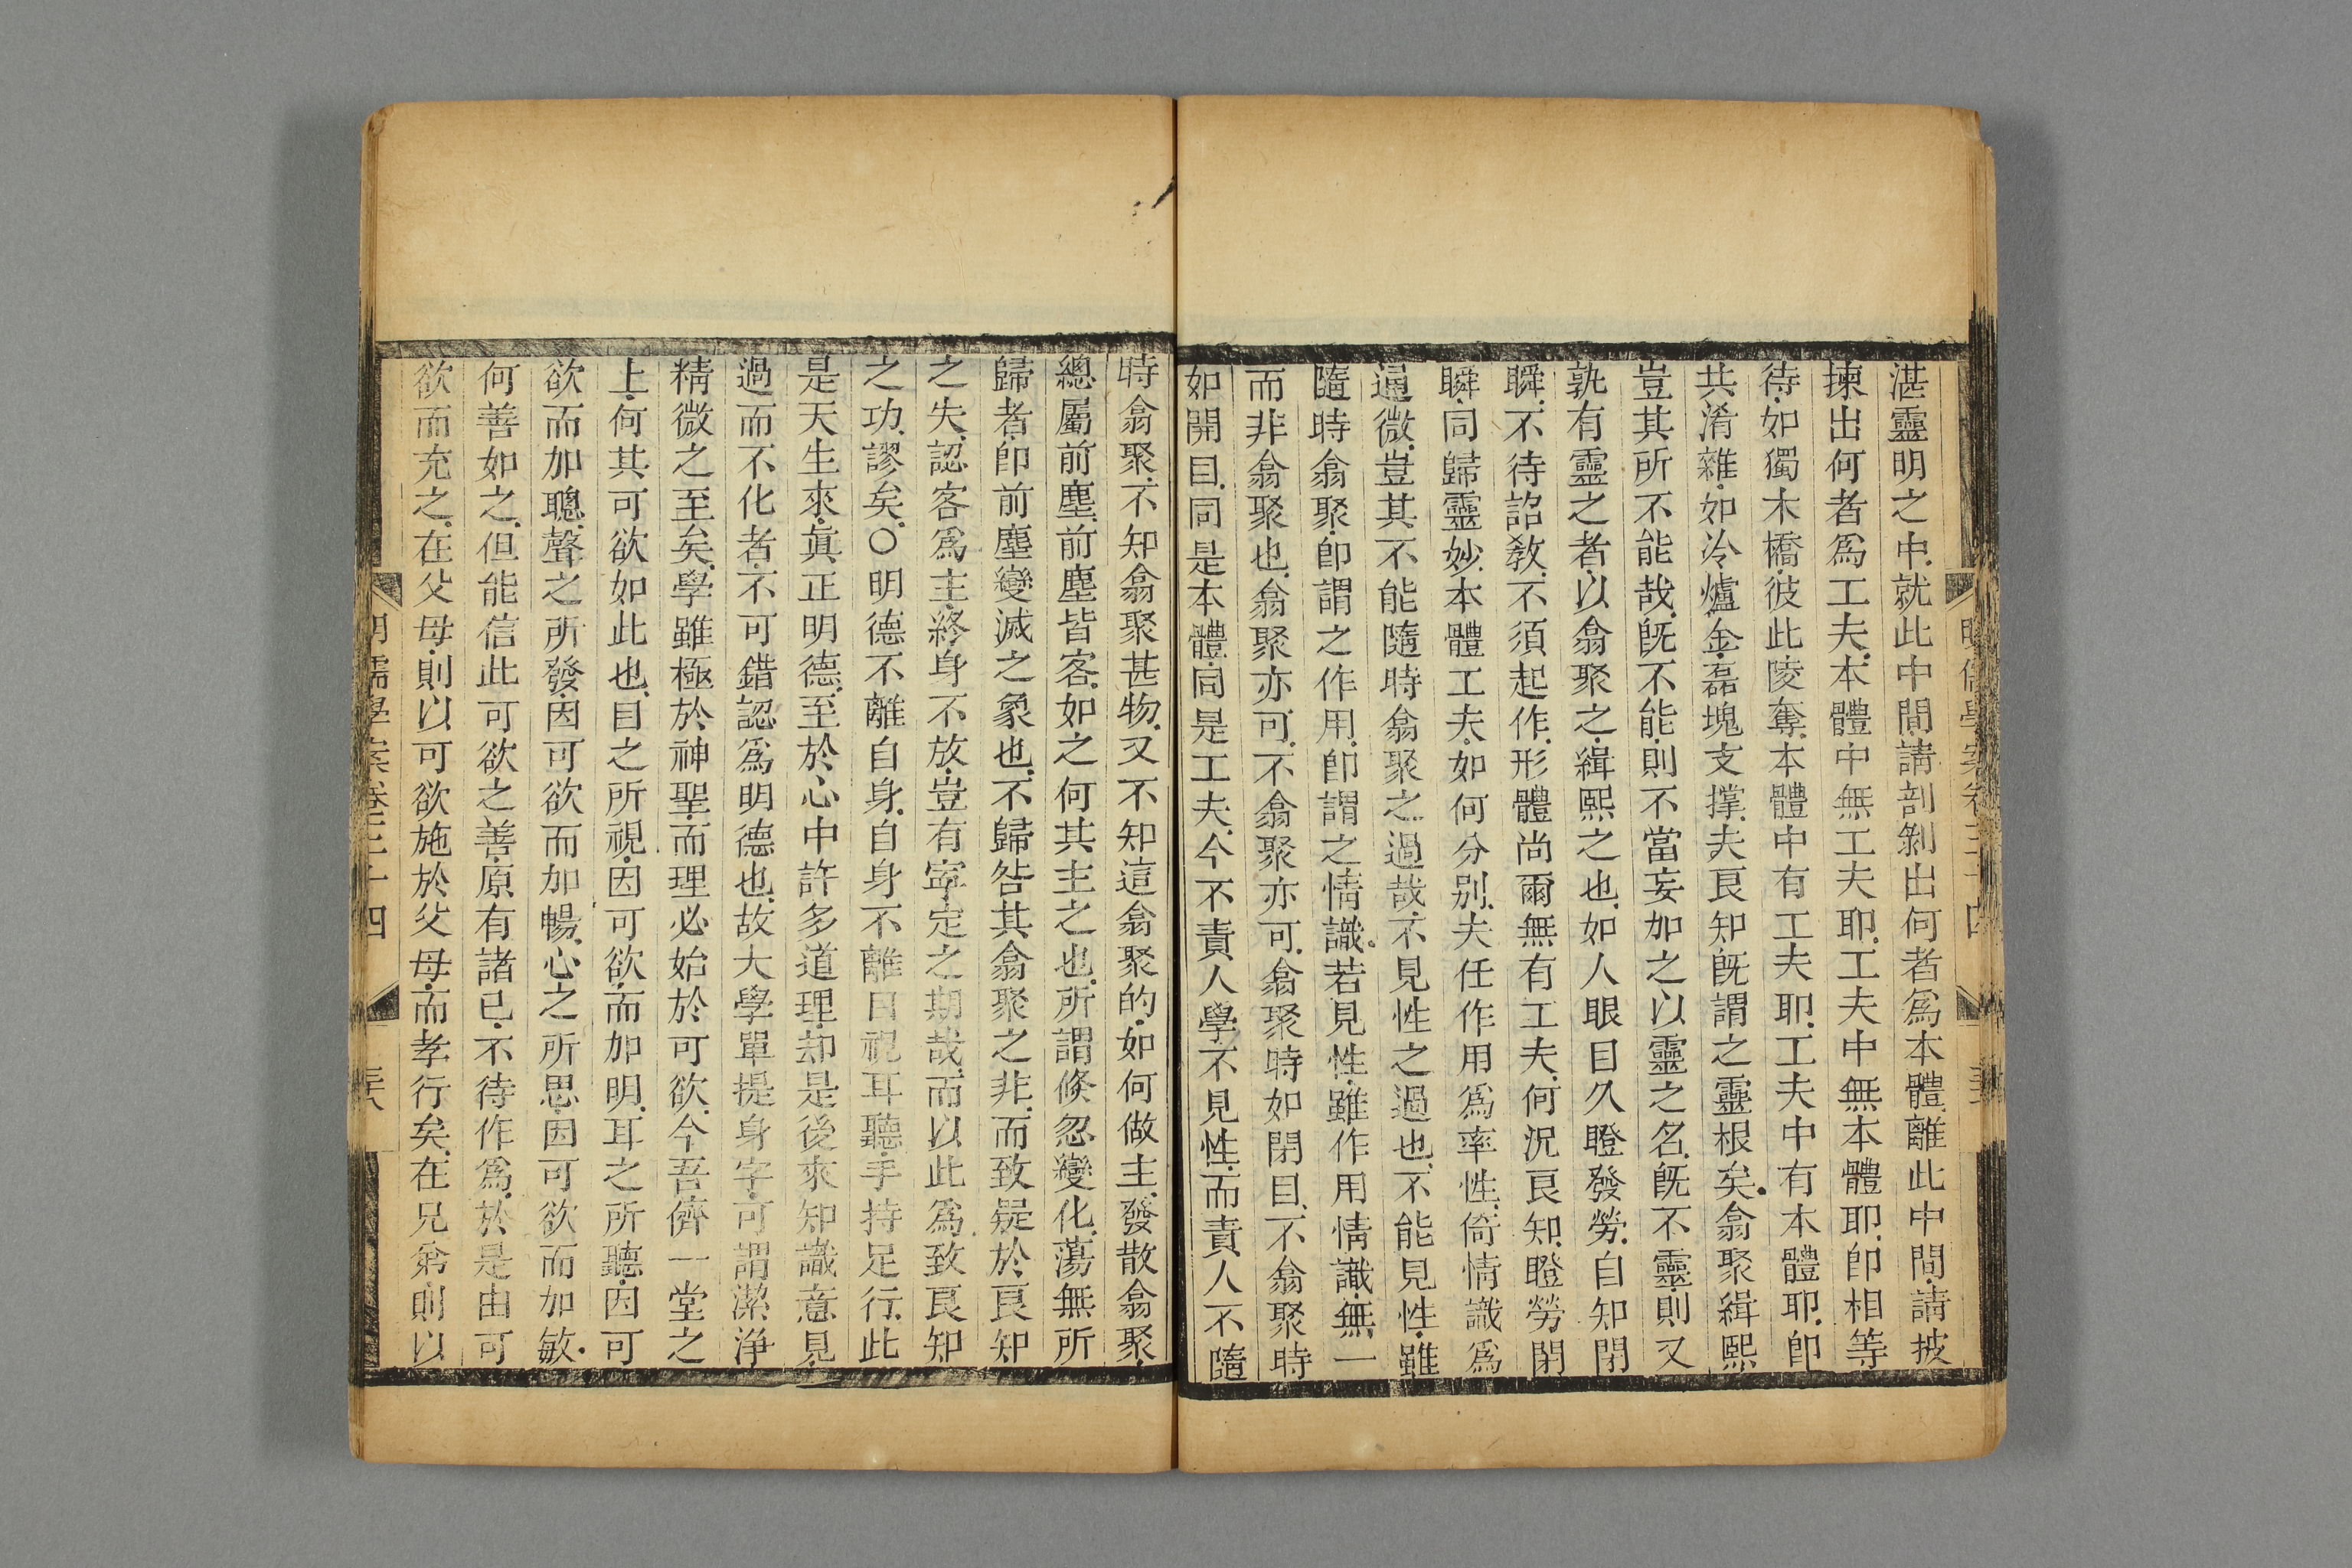 湛靈明之中就此中間請剖剝出何者爲本體離此中間請披
揀出何者爲工夫本體中無工夫耶工夫中無本體耶卽相等
待如獨木橋彼此陵奪本體中有工夫耶工夫中有本體耶卽
共淆雜如冷爐金磊塊支撑夫良知旣謂之靈根矣翕聚緝熙
豈其所不能哉旣不能則不當妄加之以靈之名旣不靈則又
孰有靈之者以翕聚之緝熙之也如人眼目久瞪發勞自知閉
瞬不待詔敎不須起作形體尚爾無有工夫何況良知瞪勞閉
瞬同歸靈妙本體工夫如何分別夫任作用爲率性倚情識爲
通微豈其不能隨時翕聚之過哉不見性之過也不能見性雖
隨時翕聚卽謂之作用卽謂之情識若見性雖作用情識無一
而非翕聚也翕聚亦可不翕聚亦可翕聚時如閉目不翕聚時
如開目同是本體同是工夫今不責人學不見性而責人不隨
時翕聚不知翕聚甚物又不知這翕聚的如何做主發散翕聚
總屬前塵前塵皆客如之何其主之也所謂倏忽變化蕩無所
歸者卽前塵變滅之象也不歸咎其翕聚之非而致疑於良知
之失認客爲主終身不放豈有寧定之期哉而以此爲致良知
之功謬矣○明德不離自身自身不離目視耳聽手持足行此
是天生來眞正明德至於心中許多道理却是後來知識意見
過而不化者不可錯認爲明德也故大學單提身字可謂潔淨
精微之至矣學雖極於神聖而理必始於可欲今吾儕一堂之
上何其可欲如此也目之所視因可欲而加明耳之所聽因可
欲而加聰聲之所發因可欲而加暢心之所思因可欲而加敏
何善如之但能信此可欲之善原有諸已不待作爲於是由可
欲而充之在父母則以可欲施於父母而孝行矣在兄弟則以
明儒學案卷三十四